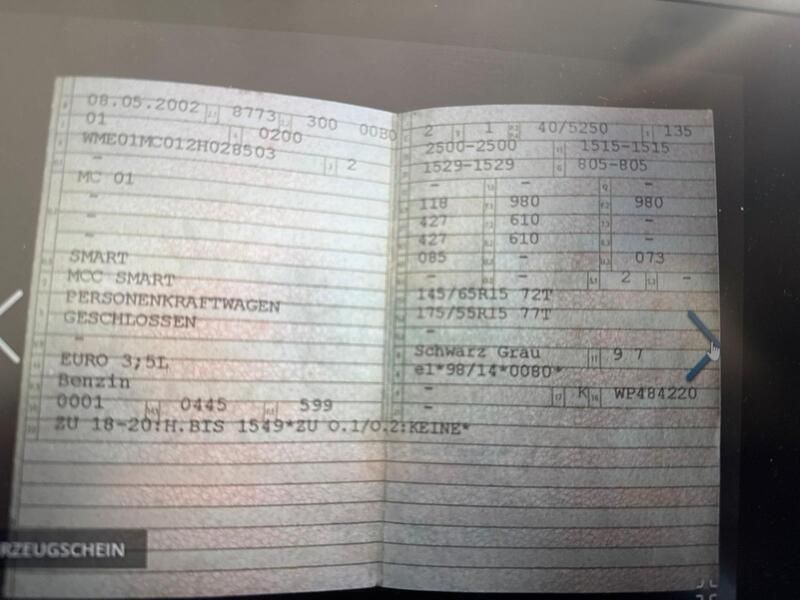 08.05.2002 8773 300 00B0
01 0200
WME01MC012H028503
- 2
MC 01
-
-
-
SMART
MCC SMART
PERSONENKRAFTWAGEN
GESCHLOSSEN
-
EURO 3;5L
Benzin
0001 0445 599
ZU 18-20:H.BIS 1549*ZU O.1/O.2:KEINE*
2 1 40/5250 135
2500-2500 1515-1515
1529-1529 805-805
- - -
118 980 980
427 610 -
427 610 -
085 - 073
- - 2 -
145/65R15 72T
175/55R15 77T
-
Schwarz Grau 9 7
e1*98/14*0080*
- K WP484220
-
RZEUGSCHEIN